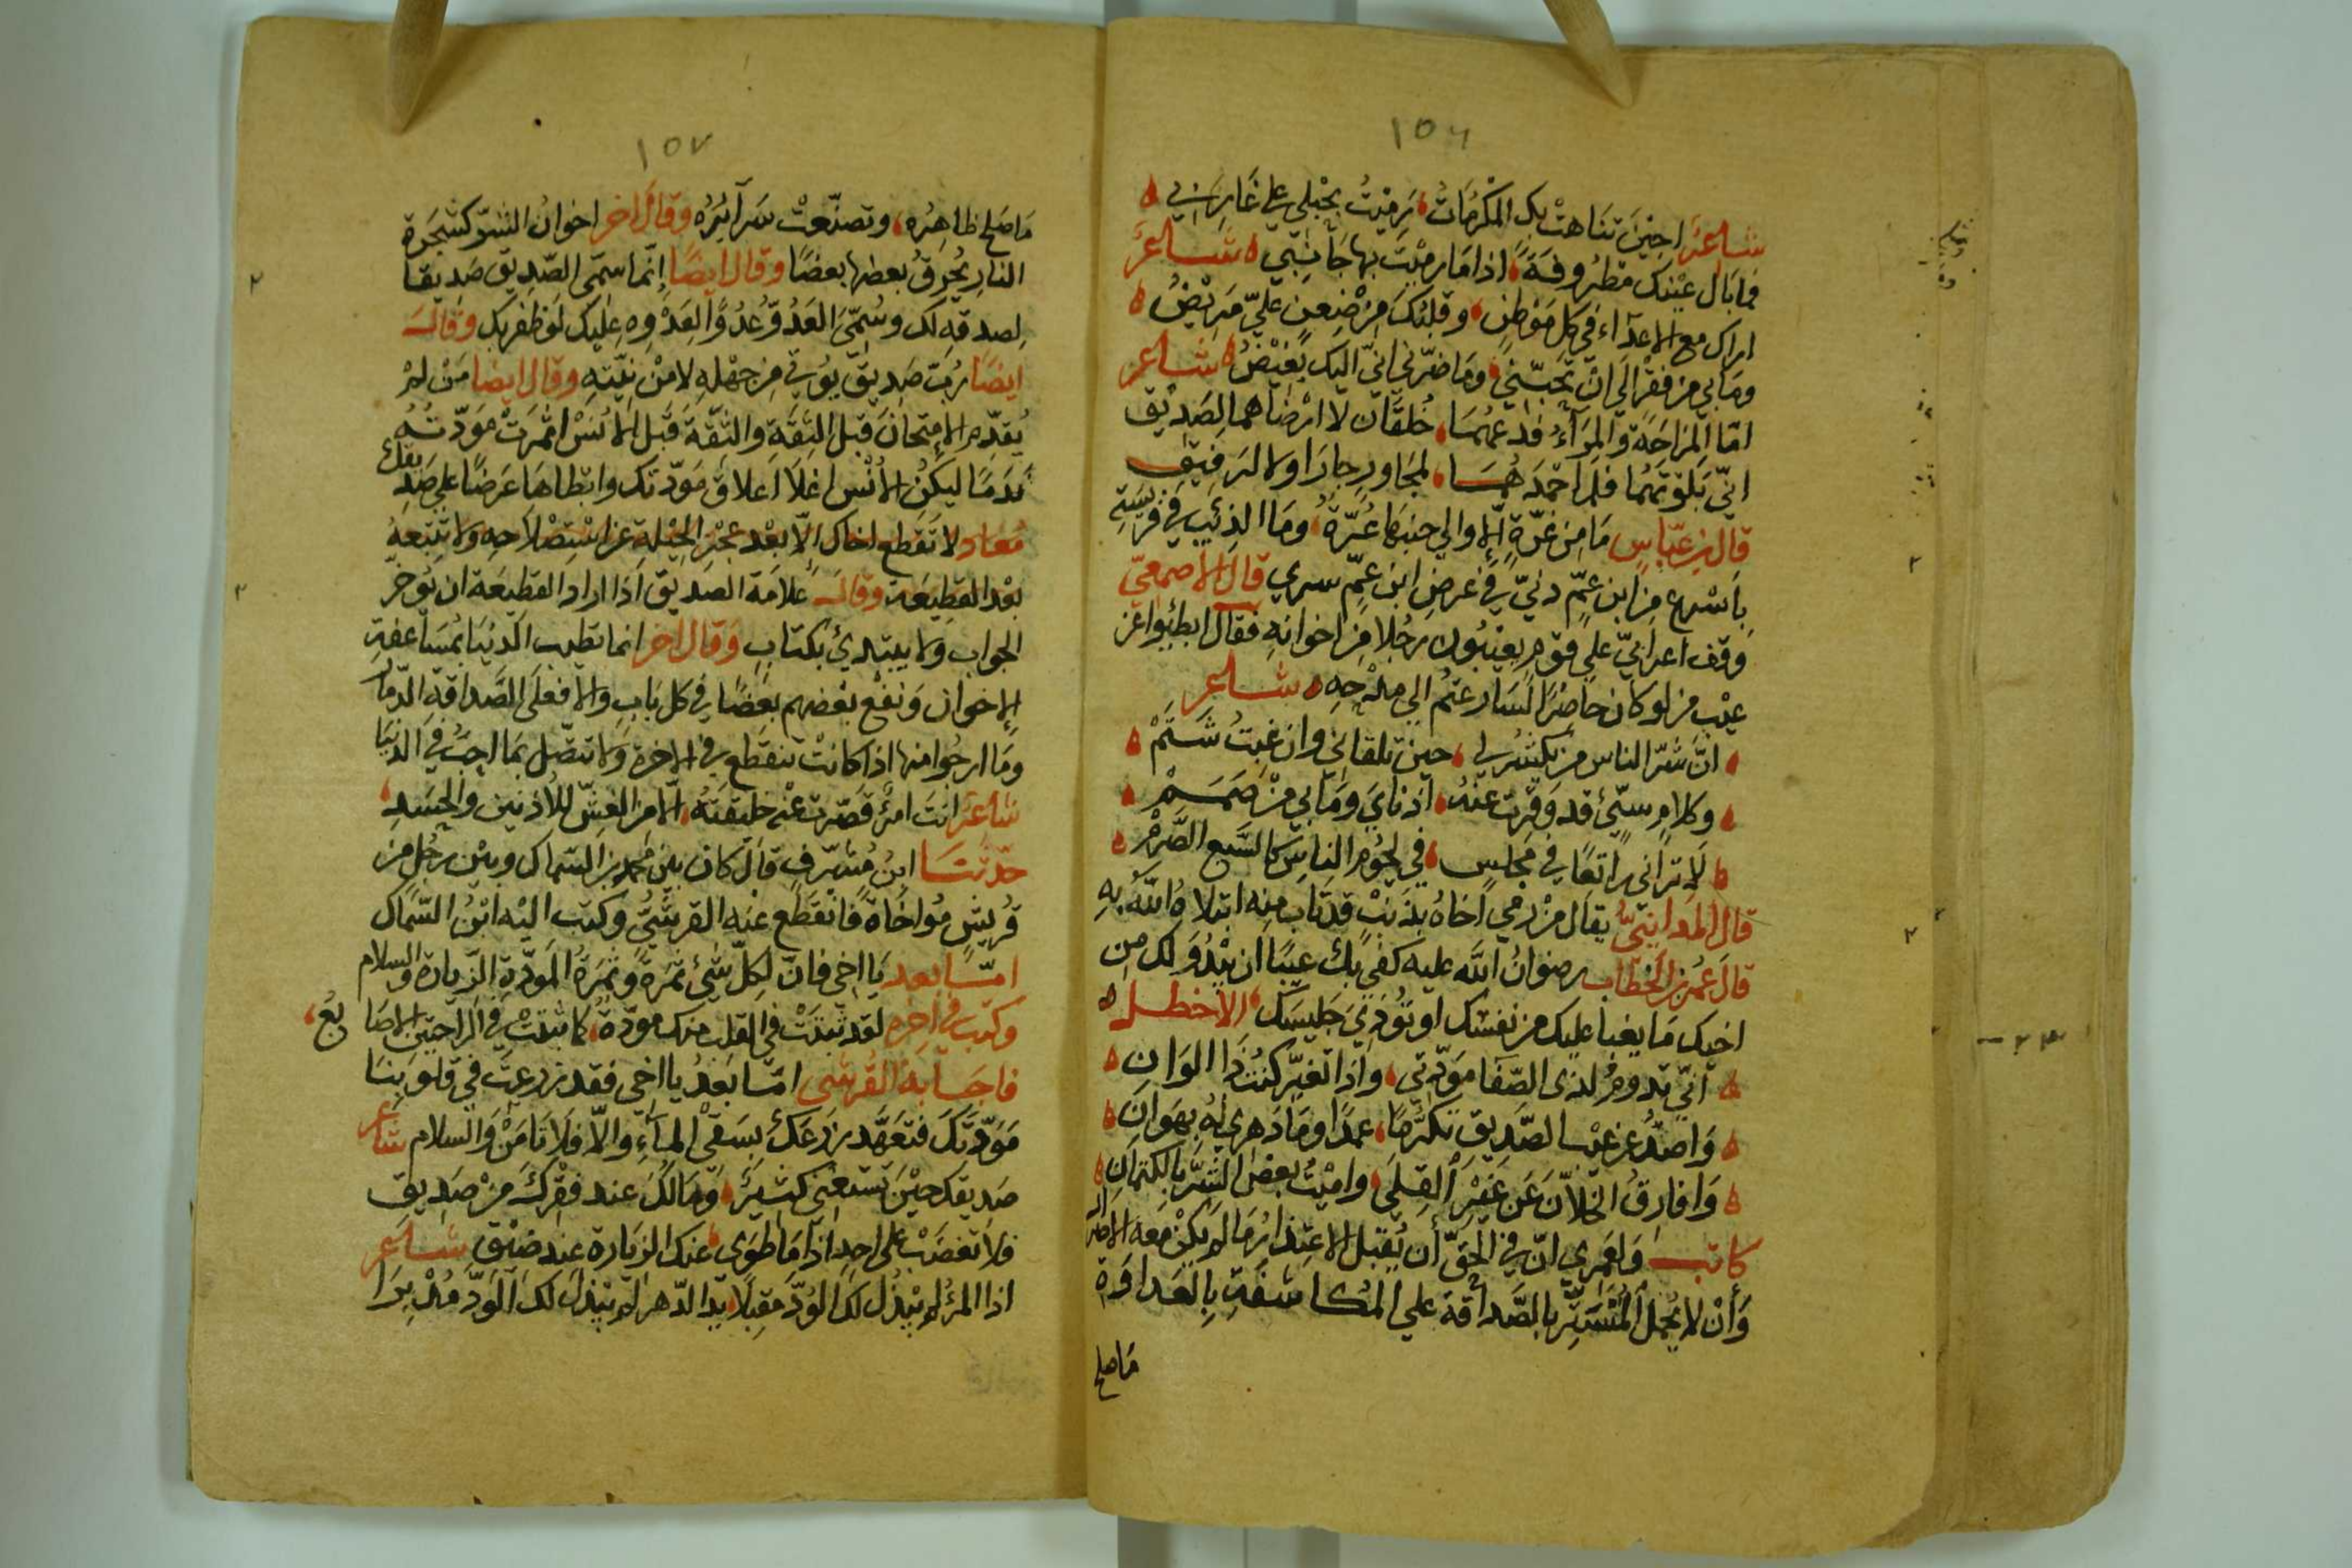 ١٥٦
شاعر احين تناهت بك المكرمات رميت بحبلي على غاربي
فما بال عينك مطروفة اذا ما رميت بها جانبي شاعر
اراك مع الاعداء في كل موطن وقلبك من ضغن علي مريض
وما بي من فقر الى ان تحبني وما ضرني اني اليك بغيض شاعر
اما المزاحة والمراء فدعهما خلقان لا ارضاهما لصديق
اني بلوتهما فلم احمدهما لمجاور جارا ولا لرفيق
قال بن عباس ما من غرة الا والى جنبها عرة وما الذئيب في فريسته
باسرع من ابن عم دني في عرض ابن عم سري قال الاصمعي
وقف اعرابي على قوم يعيبون رجلا من اخوانه فقال ابطئوا عن
عيب من لو كان حاضرا لسارعتم الى مدحه شاعر
ان شر الناس من يكشر لي حين تلقاني وان غبت شتم
وكلام سيئ قد وقرت عنه اذناي وما بي من صمم
لا تراني راتعا في مجلس في لحوم الناس كالسبع الضرم
قال المدايني يقال من رمي اخاه بذنب قد تاب منه ابتلاه الله به
قال عمر بن الخطاب رضوان الله عليه كفى بك عيبا ان يبدو لك من
اخيك ما يغبا عليك من نفسك او تؤذي جليسك الاخطل
اني تدوم لذى الصفا مودتي واذا تغير كنت ذا الوان
واصد عن عيب الصديق تكرما عمدا وما دهري له بهوان
وافارق الخلان عن غير القلى واميت بعض الشر بالكتمان
كاتب ولعمري ان في الحق أن يقبل الاعتذار ما لم يكن معه الاصرار
وأن لا يحمل المتستر بالصداقة علي المكاشفة بالعداوة
ما صلح
١٥٧
ما صلح ظاهره وتصنعت سرآئره وقال اخر اخوان الشر كشجرة
النار يحرق بعضها بعضا وقال ايضا إنما سمى الصديق صديقا
لصدقه لك وسمى العدو عدوا لعدوه عليك لو ظفر بك وقال
ايضا رب صديق يؤتي من جهله لا من نيته وقال ايضا من لم
يقدم الامتحان قبل الثقة والثقة قبل الانس اثمرت مودته
ندما ليكن الانس اغلا اعلاق مودتك وابطاها عرضا على صديقك
معاد لا تقطع اخاك الا بعد عجز الحيلة عن استصلاحه ولا تتبعه
بعد القطيعة وقال علامة الصديق اذا اراد القطيعة ان يوخر
الجواب ولا يبتدئ بكتاب وقال آخر انما تطيب الدنيا بمساعفة
الاخوان ونفع بعضهم بعضا في كل باب والا فعلى الصداقة الدمار
وما ارجوا منها اذا كانت تنقطع في الاخرة ولا تتصل بما احب في الدنيا
شاعر انت امرؤ قصرت عنه خليقته الا من الغش للادنين والحسد
حدثنا ابن مشرف قال كان بين محمد بن السماك وبين رجل من
قريش مواخاة فانقطع عنه القرشي وكتب اليه ابن السماك
اما بعد يا اخي فان لكل شيئ ثمرة وثمرة المودة الزيارة والسلام
وكتب في اخره لقد ثبتت في القلب منك مودة كما ثبتت في الراحتين الاصابع
فاجابه القرشي اما بعد يا اخي فقد زرعت في قلوبنا
مودتك فتعهد زرعك بسقي المآء والا فلا تامن والسلام شاعر
صديقك حين تستغني كثير وما لك عند فقرك من صديق
فلا تغضب على احد اذا ما طوى عنك الزيارة عند ضيق شاعر
اذا المرؤ لم يبذل لك الود مقبلا يد الدهر لم يبذل لك الود مدبرا